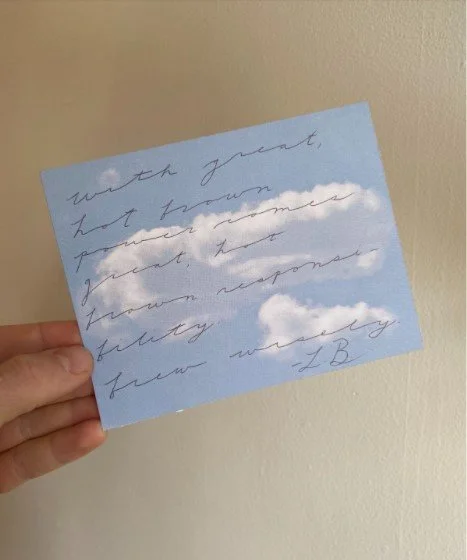 with great,
hot brown
power comes
great, hot
brown response-
bility
brew wisely.
-LB